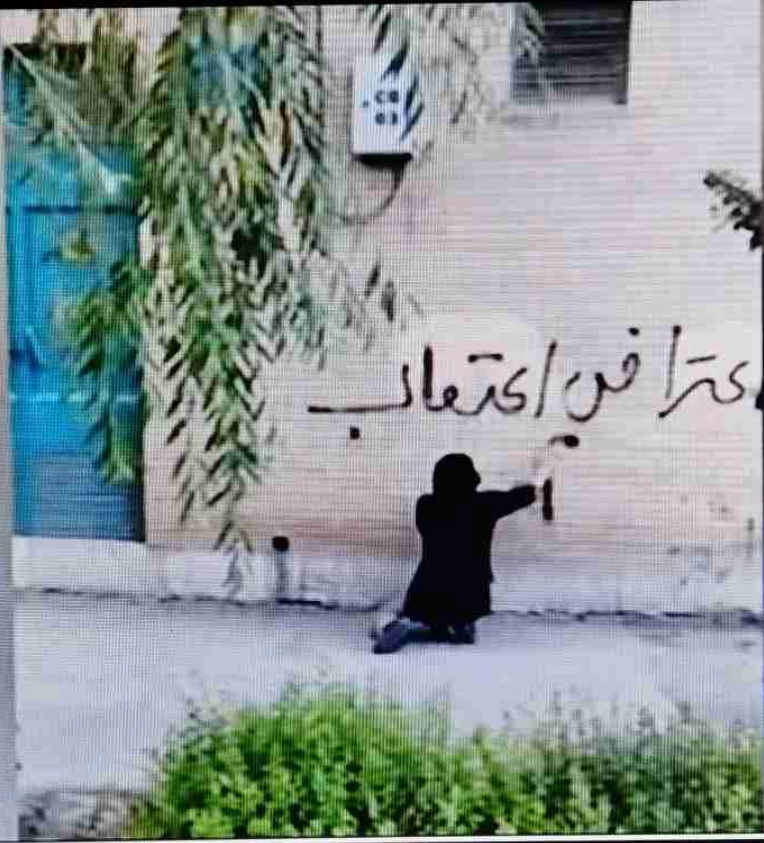 عتراض اعتصاب